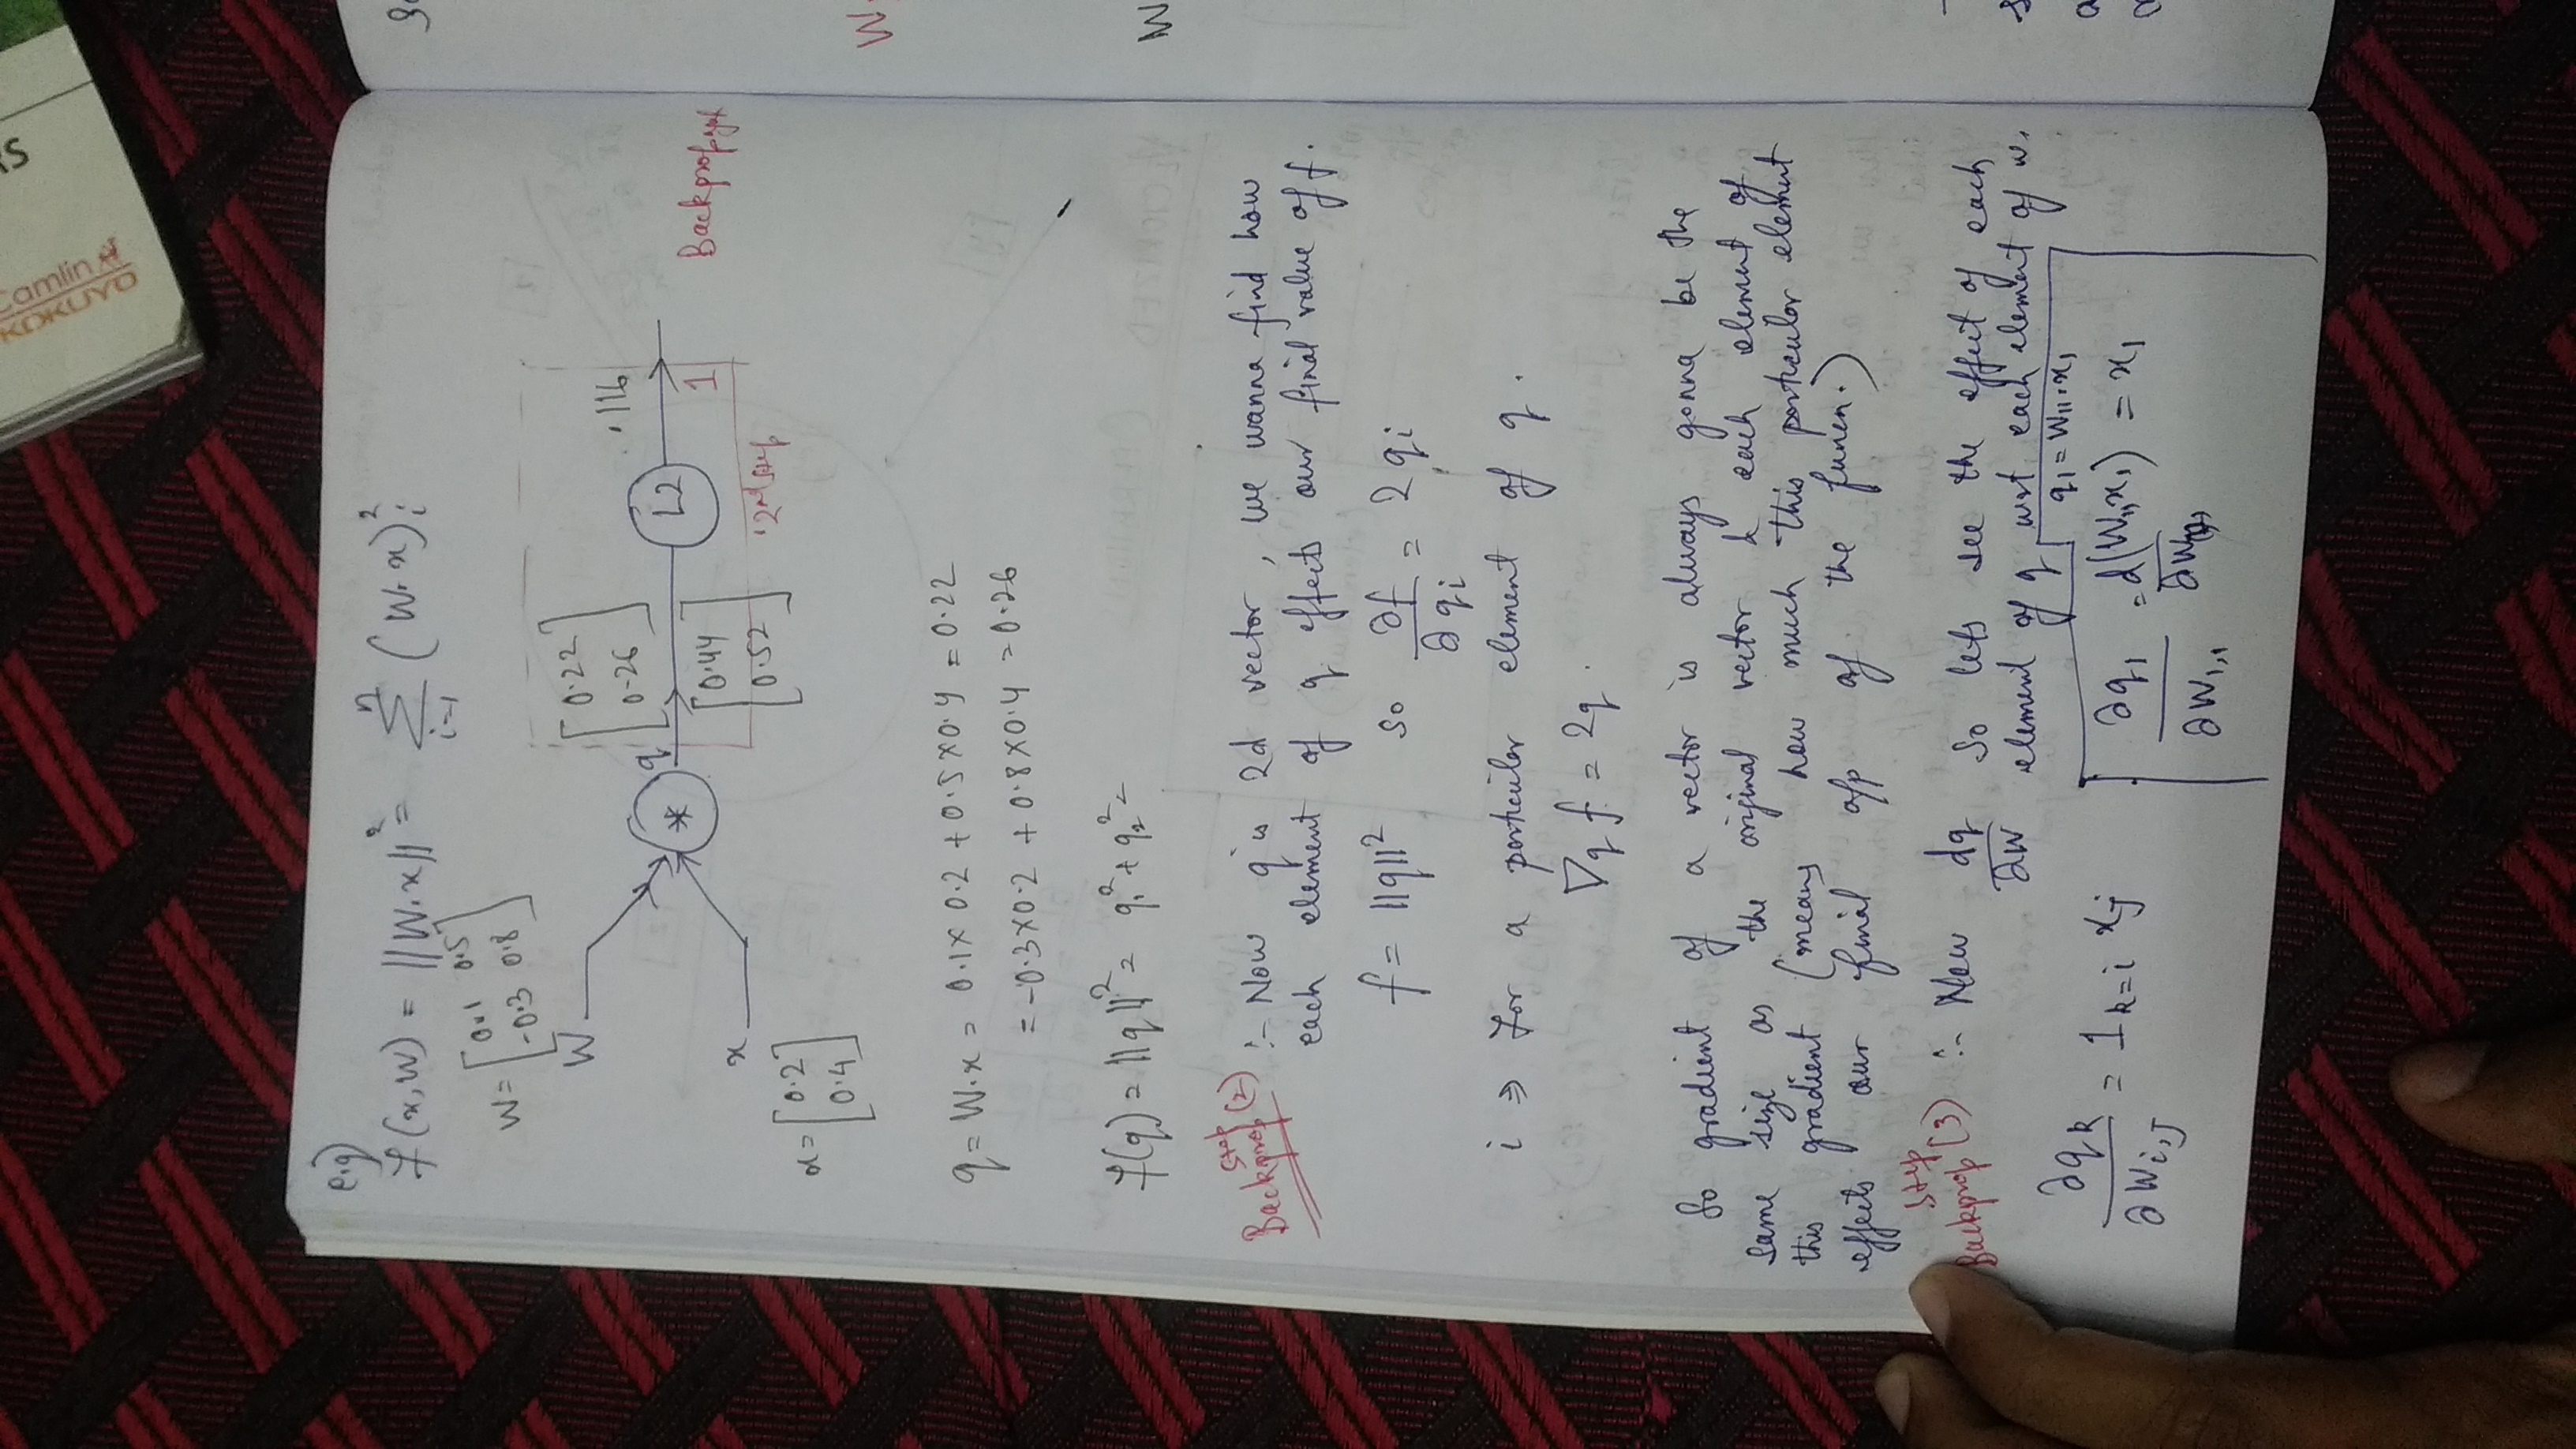 Camlin
KOKUYO
e.g)
f(x,W) = ||W.x||² = Σ (W.x)²ᵢ
n
i=1
W = [0.1 0.5
-0.3 0.8]
W
[0.22
0.26]
.116
q
*
L2
1
Backpropagat
[0.44
0.52]
2nd step
x
x = [0.2
0.4]
q = W.x = 0.1 x 0.2 + 0.5 x 0.4 = 0.22
= -0.3 x 0.2 + 0.8 x 0.4 = 0.26
f(q) = ||q||² = q₁² + q₂² =
Backprop step (2) :- Now q is 2d vector, we wanna find how
each element of q effects our final value of f.
f = ||q||² so ∂f/∂qi = 2qi
i ⇒ for a particular element of q.
∇q f = 2q.
So gradient of a vector is always gonna be the
same size as the original vector & each element of
this gradient (means how much this particular element
effects our final o/p of the funcn.)
Backprop step (3) :- Now dq/∂W so lets see the effect of each
element of q wrt each element of w.
q₁ = W₁₁.x₁
∂qk/∂Wi,j = 1k=i xj
∂q₁/∂W₁,₁ = d(W₁,₁x₁)/∂W₁,₁ = x₁